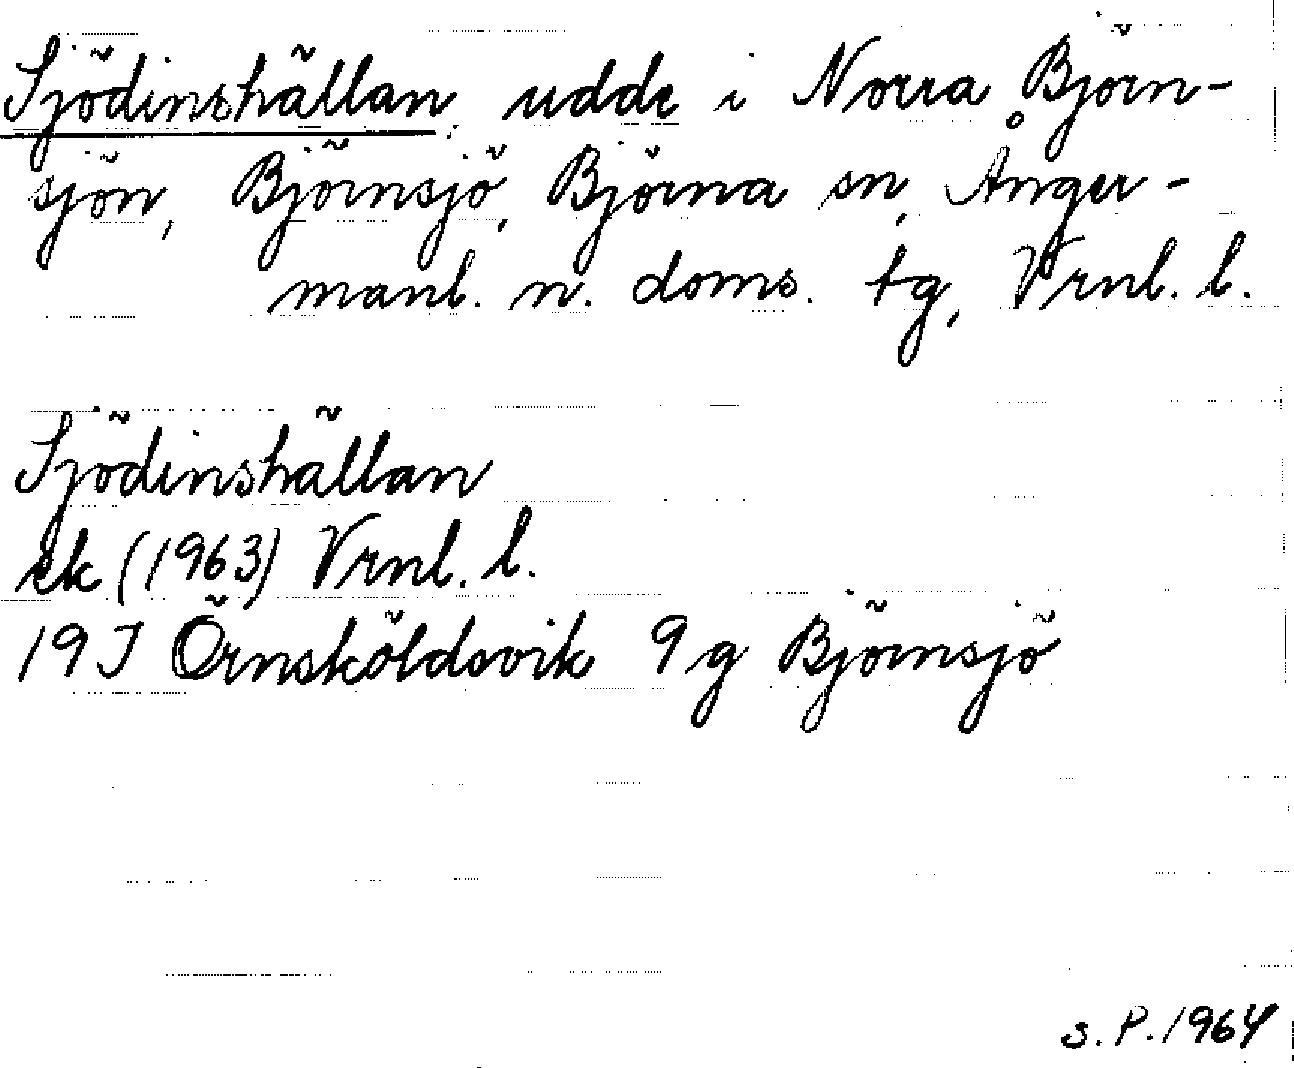 Sjödinshällan, udde i Norra Björn-
sjön, Björnsjö, Björna sn, Ånger-
manl. n. doms. tg, Vrnl. l.
Sjödinshällan
ek (1963) Vrnl. l.
19J Örnsköldsvik 9g Björnsjö
S. P. 1964